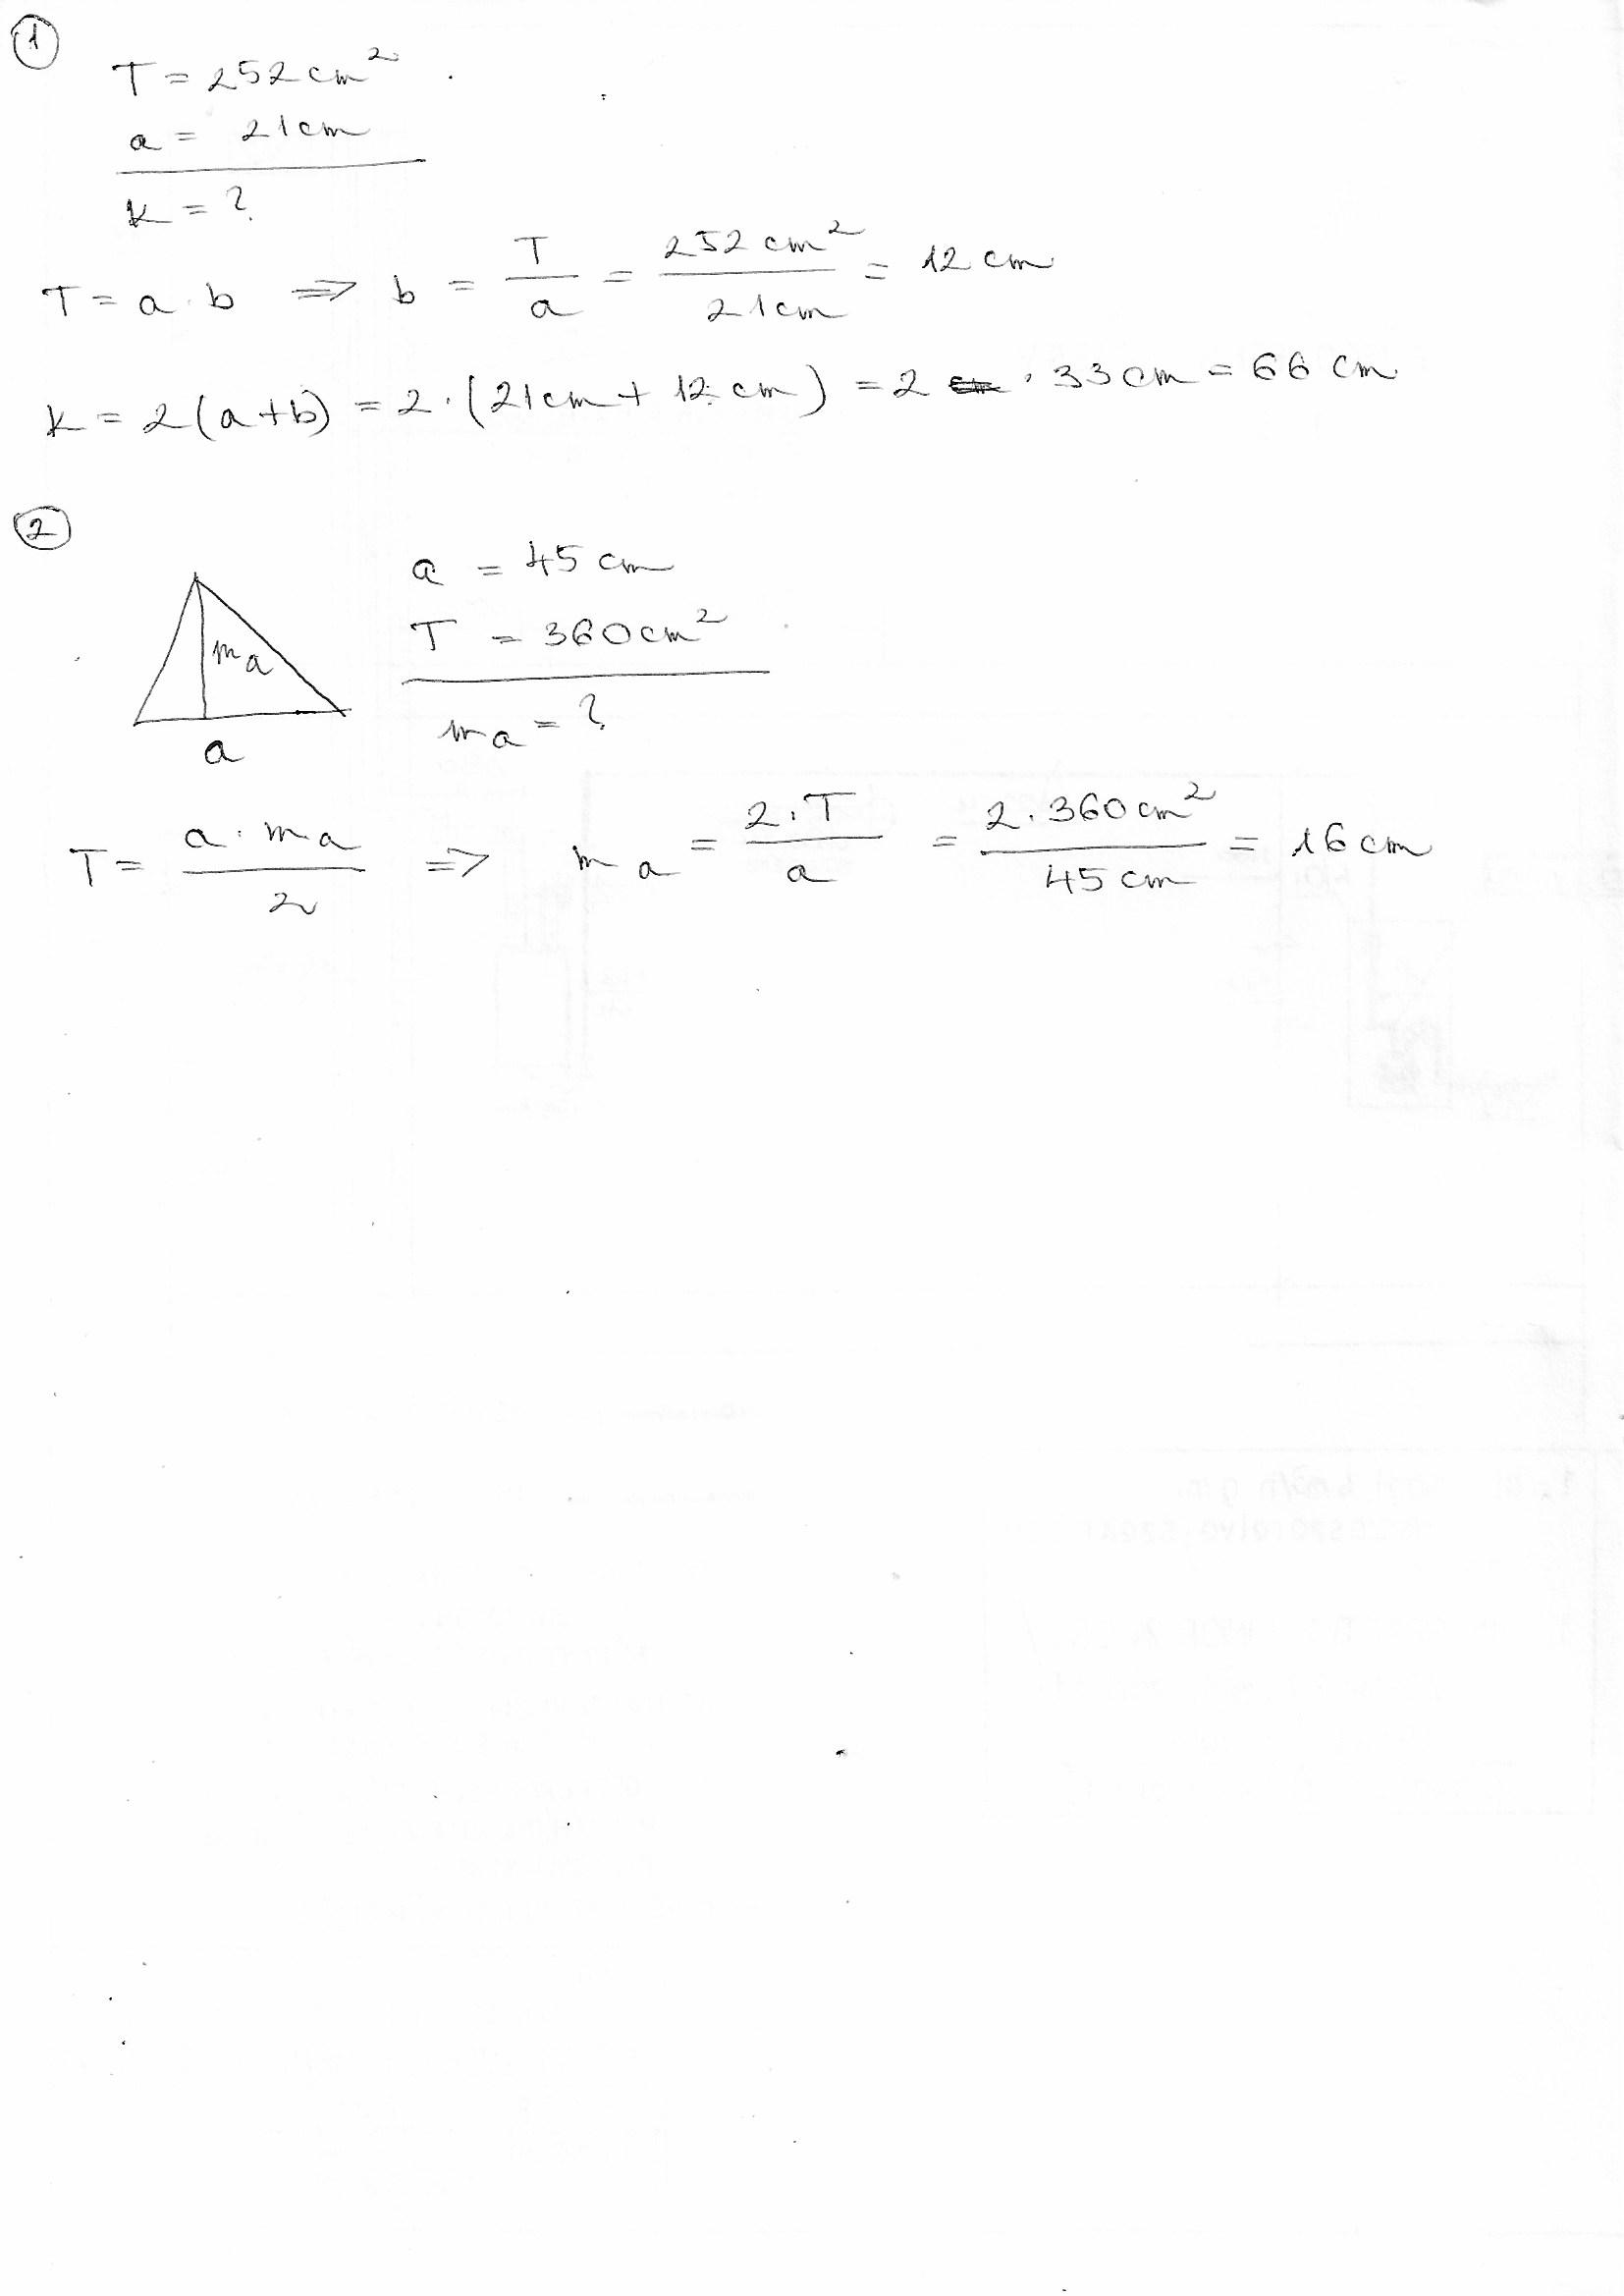 1
T = 252 cm²
a = 21 cm
K = ?
T = a · b => b = T/a = 252 cm²/21 cm = 12 cm
K = 2(a+b) = 2 · (21 cm + 12 cm) = 2 · 33 cm = 66 cm
2
a = 45 cm
T = 360 cm²
ma
ma = ?
a
T = a · ma/2 => ma = 2 · T/a = 2 · 360 cm²/45 cm = 16 cm